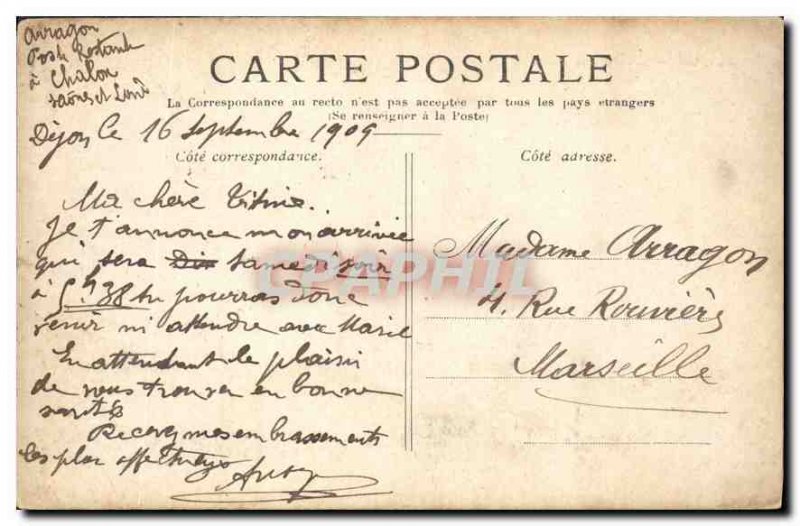 Arragon
Poste Restante
à Chalon
saônes et Loire
CARTE POSTALE
La Correspondance au recto n'est pas acceptée par tous les pays étrangers
(Se renseigner à la Poste)
Dijon le 16 Septembre 1909
Côté correspondance.
Côté adresse.
Ma chère Titine.
Je t'annonce mon arrivée
qui sera Samedi soir
à 5h 38 tu pourras donc
venir m'attendre avec Marie
En attendant le plaisir
de vous trouver en bonne
santés
Recevez mes embrassements
les plus affectueux
Madame Arragon
4, Rue Rouvière
Marseille
CPAPHIL